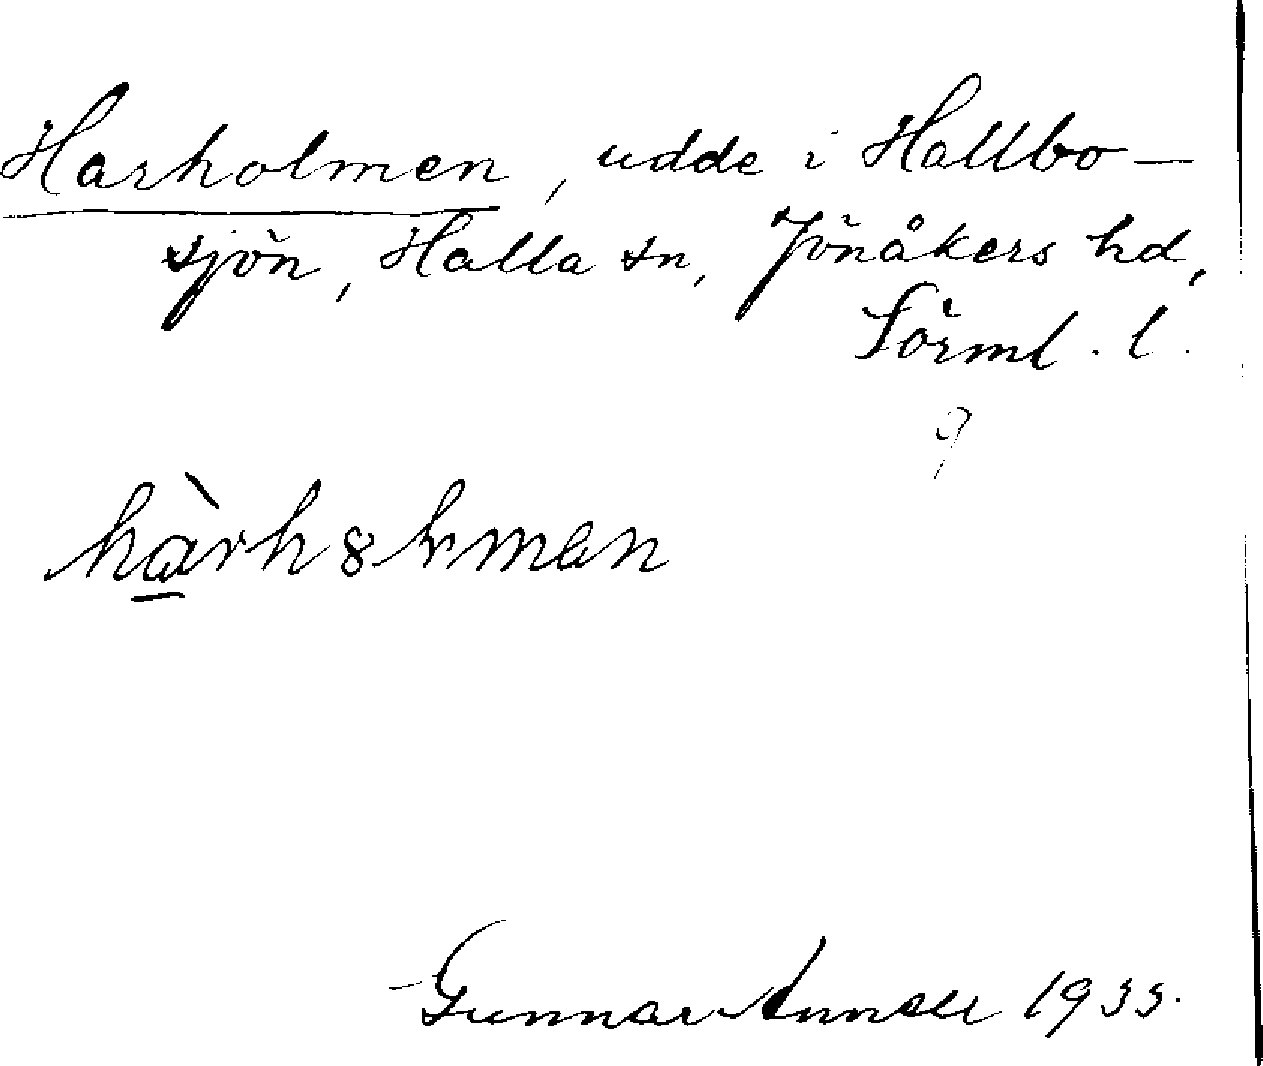 Harholmen, udde i Hallbo-
sjön, Halla sn, Jönåkers hd,
Sörml. l.
Gunnar Annell 1933.